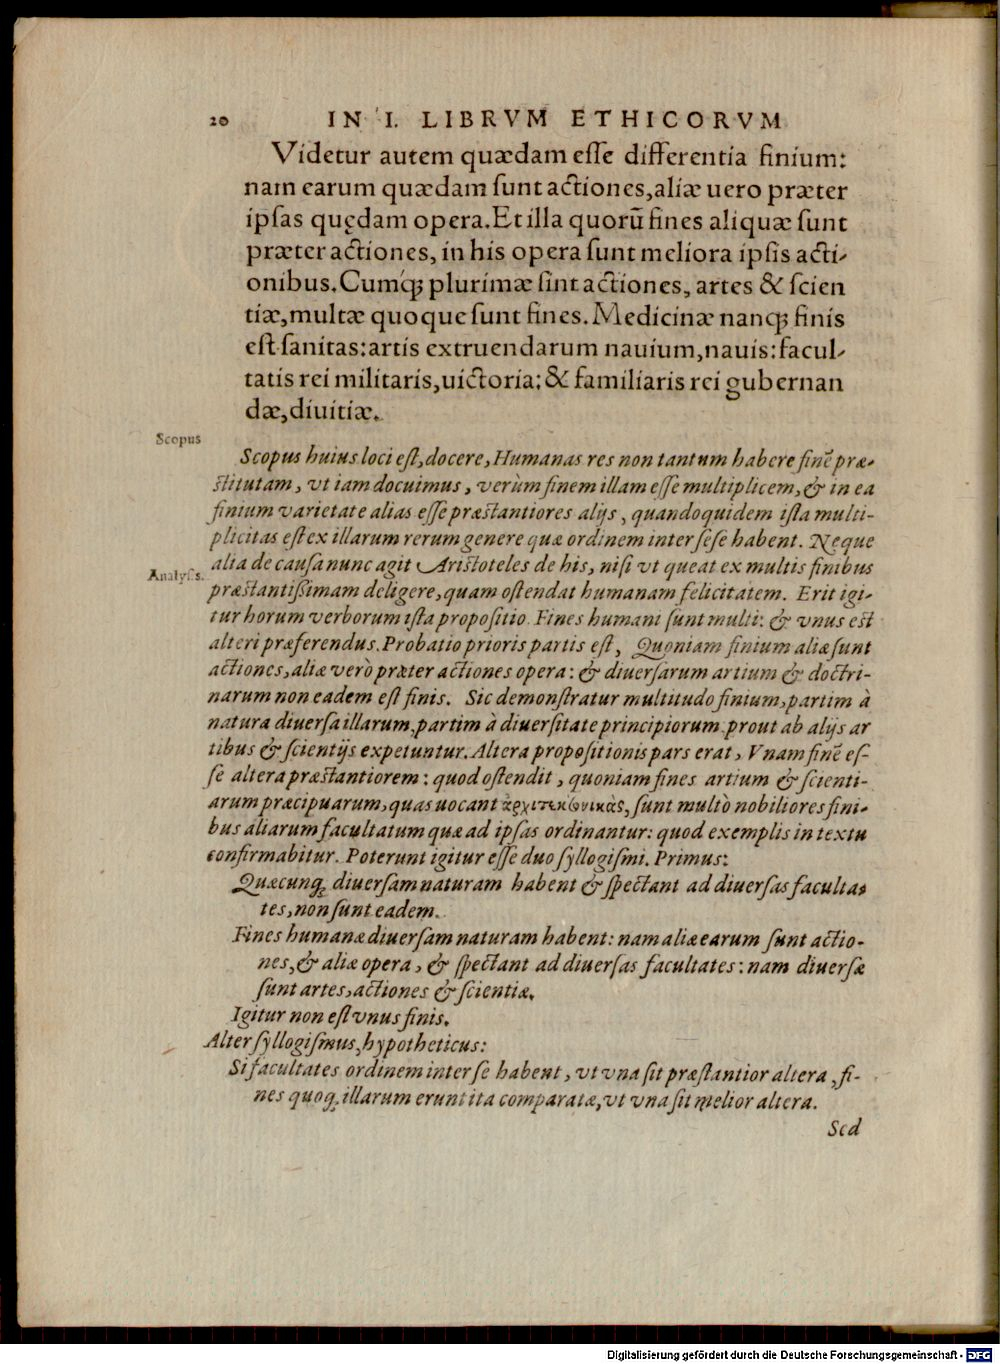 20 IN I. LIBRVM ETHICORVM
Videtur autem quædam eſſe differentia finium:
nam earum quædam ſunt actiones, aliæ uero præter
ipſas quędam opera. Et illa quorū fines aliquæ ſunt
præter actiones, in his opera ſunt meliora ipſis acti-
onibus. Cumq́ꝫ plurimæ ſint actiones, artes & ſcien
tiæ, multæ quoque ſunt fines. Medicinæ nanqꝫ finis
eſt ſanitas: artis extruendarum nauium, nauis: facul-
tatis rei militaris, uictoria: & familiaris rei gubernan
dæ, diuitiæ.
Scopus
Scopus huius loci eſt, docere, Humanas res non tantum habere finē præ-
ſtitutam, vt iam docuimus, verùm finem illam eſſe multiplicem, & in ea
finium varietate alias eſſe præſtantiores alijs, quandoquidem iſta multi-
plicitas eſt ex illarum rerum genere quæ ordinem inter ſeſe habent. Neque
alia de cauſa nunc agit Ariſtoteles de his, niſi vt queat ex multis finibus
Analyſis.
præſtantiſſimam deligere, quam oſtendat humanam felicitatem. Erit igi-
tur horum verborum iſta propoſitio. Fines humani ſunt multi: & vnus eſt
alteri præferendus. Probatio prioris partis eſt, Quoniam finium aliæ ſunt
actiones, aliæ verò præter actiones opera: & diuerſarum artium & doctri-
narum non eadem eſt finis. Sic demonſtratur multitudo finium, partim à
natura diuerſa illarum, partim à diuerſitate principiorum prout ab alijs ar
tibus & ſcientijs expetuntur. Altera propoſitionis pars erat, Vnam finē eſ-
ſe altera præſtantiorem: quod oſtendit, quoniam fines artium & ſcienti-
arum præcipuarum, quas uocant ἀρχιτεκτονικὰς, ſunt multò nobiliores fini-
bus aliarum facultatum quæ ad ipſas ordinantur: quod exemplis in textu
confirmabitur. Poterunt igitur eſſe duo ſyllogiſmi. Primus:
Quæcunqꝫ diuerſam naturam habent & ſpectant ad diuerſas faculta-
tes, non ſunt eadem.
Fines humanæ diuerſam naturam habent: nam aliæ earum ſunt actio-
nes, & aliæ opera, & ſpectant ad diuerſas facultates: nam diuerſæ
ſunt artes, actiones & ſcientiæ.
Igitur non eſt vnus finis.
Alter ſyllogiſmus, hypotheticus:
Si facultates ordinem inter ſe habent, vt vna ſit præſtantior altera, fi-
nes quoqꝫ illarum erunt ita comparatæ, vt vna ſit melior altera.
Sed
Digitalisierung gefördert durch die Deutsche Forschungsgemeinschaft - DFG